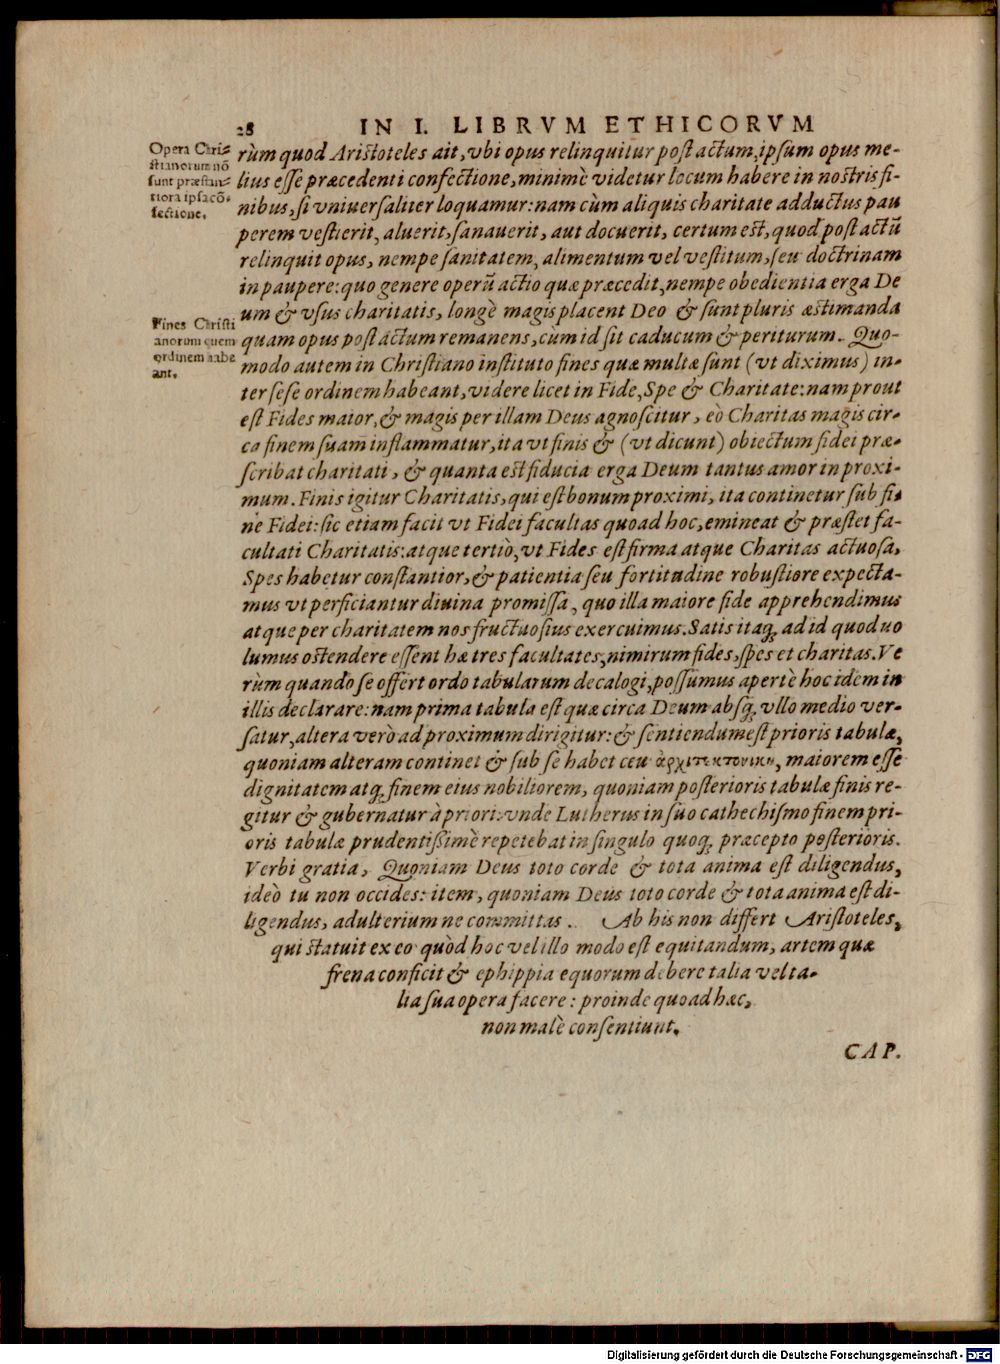 28
IN I. LIBRVM ETHICORVM
Opera Chri-
stianorum nō
sunt præstan-
tiora ipsa cō-
fectione.
rùm quod Aristoteles ait, vbi opus relinquitur post actum, ipsum opus me-
lius esse præcedenti confectione, minimè videtur locum habere in nostris fi-
nibus, si vniuersaliter loquamur: nam cùm aliquis charitate adductus pau
perem vestierit, aluerit, sanauerit, aut docuerit, certum est, quod post actū
relinquit opus, nempe sanitatem, alimentum vel vestitum, seu doctrinam
in paupere: quo genere operū actio quæ præcedit, nempe obedientia erga De
um & vsus charitatis, longè magis placent Deo & sunt pluris æstimanda
Fines Christi
anorum quem
ordinem habe
ant.
quam opus post actum remanens, cum id sit caducum & periturum. Quo-
modo autem in Christiano instituto fines quæ multæ sunt (vt diximus) in-
ter sese ordinem habeant, videre licet in Fide, Spe & Charitate: nam prout
est Fides maior, & magis per illam Deus agnoscitur, eò Charitas magis cir-
ca finem suam inflammatur, ita vt finis & (vt dicunt) obiectum fidei præ-
scribat charitati, & quanta est fiducia erga Deum tantus amor in proxi-
mum. Finis igitur Charitatis, qui est bonum proximi, ita continetur sub fi-
ne Fidei: sic etiam facit vt Fidei facultas quoad hoc, emineat & præstet fa-
cultati Charitatis: atque tertiò, vt Fides est firma atque Charitas actuosa,
Spes habetur constantior, & patientia seu fortitudine robustiore expecta-
mus vt perficiantur diuina promissa, quo illa maiore fide apprehendimus
atque per charitatem nos fructuosius exercuimus. Satis itaq; ad id quod uo
lumus ostendere essent hæ tres facultates, nimirum fides, spes et charitas. Ve
rùm quando se offert ordo tabularum decalogi, possumus apertè hoc idem in
illis declarare: nam prima tabula est quæ circa Deum absq; vllo medio ver-
satur, altera verò ad proximum dirigitur: & sentiendum est prioris tabulæ,
quoniam alteram continet & sub se habet ceu ἀρχιτεκτονικὴ, maiorem esse
dignitatem atq; finem eius nobiliorem, quoniam posterioris tabulæ finis re-
gitur & gubernatur à priori: vnde Lutherus in suo cathechismo finem pri-
oris tabulæ prudentissimè repetebat in singulo quoq; præcepto posterioris.
Verbi gratia, Quoniam Deus toto corde & tota anima est diligendus,
ideò tu non occides: item, quoniam Deus toto corde & tota anima est di-
ligendus, adulterium ne committas. Ab his non differt Aristoteles,
qui statuit ex eo quòd hoc vel illo modo est equitandum, artem quæ
frena conficit & ephippia equorum debere talia vel ta-
lia sua opera facere: proinde quoad hæc,
non malè consentiunt.
CAP.
Digitalisierung gefördert durch die Deutsche Forschungsgemeinschaft - DFG